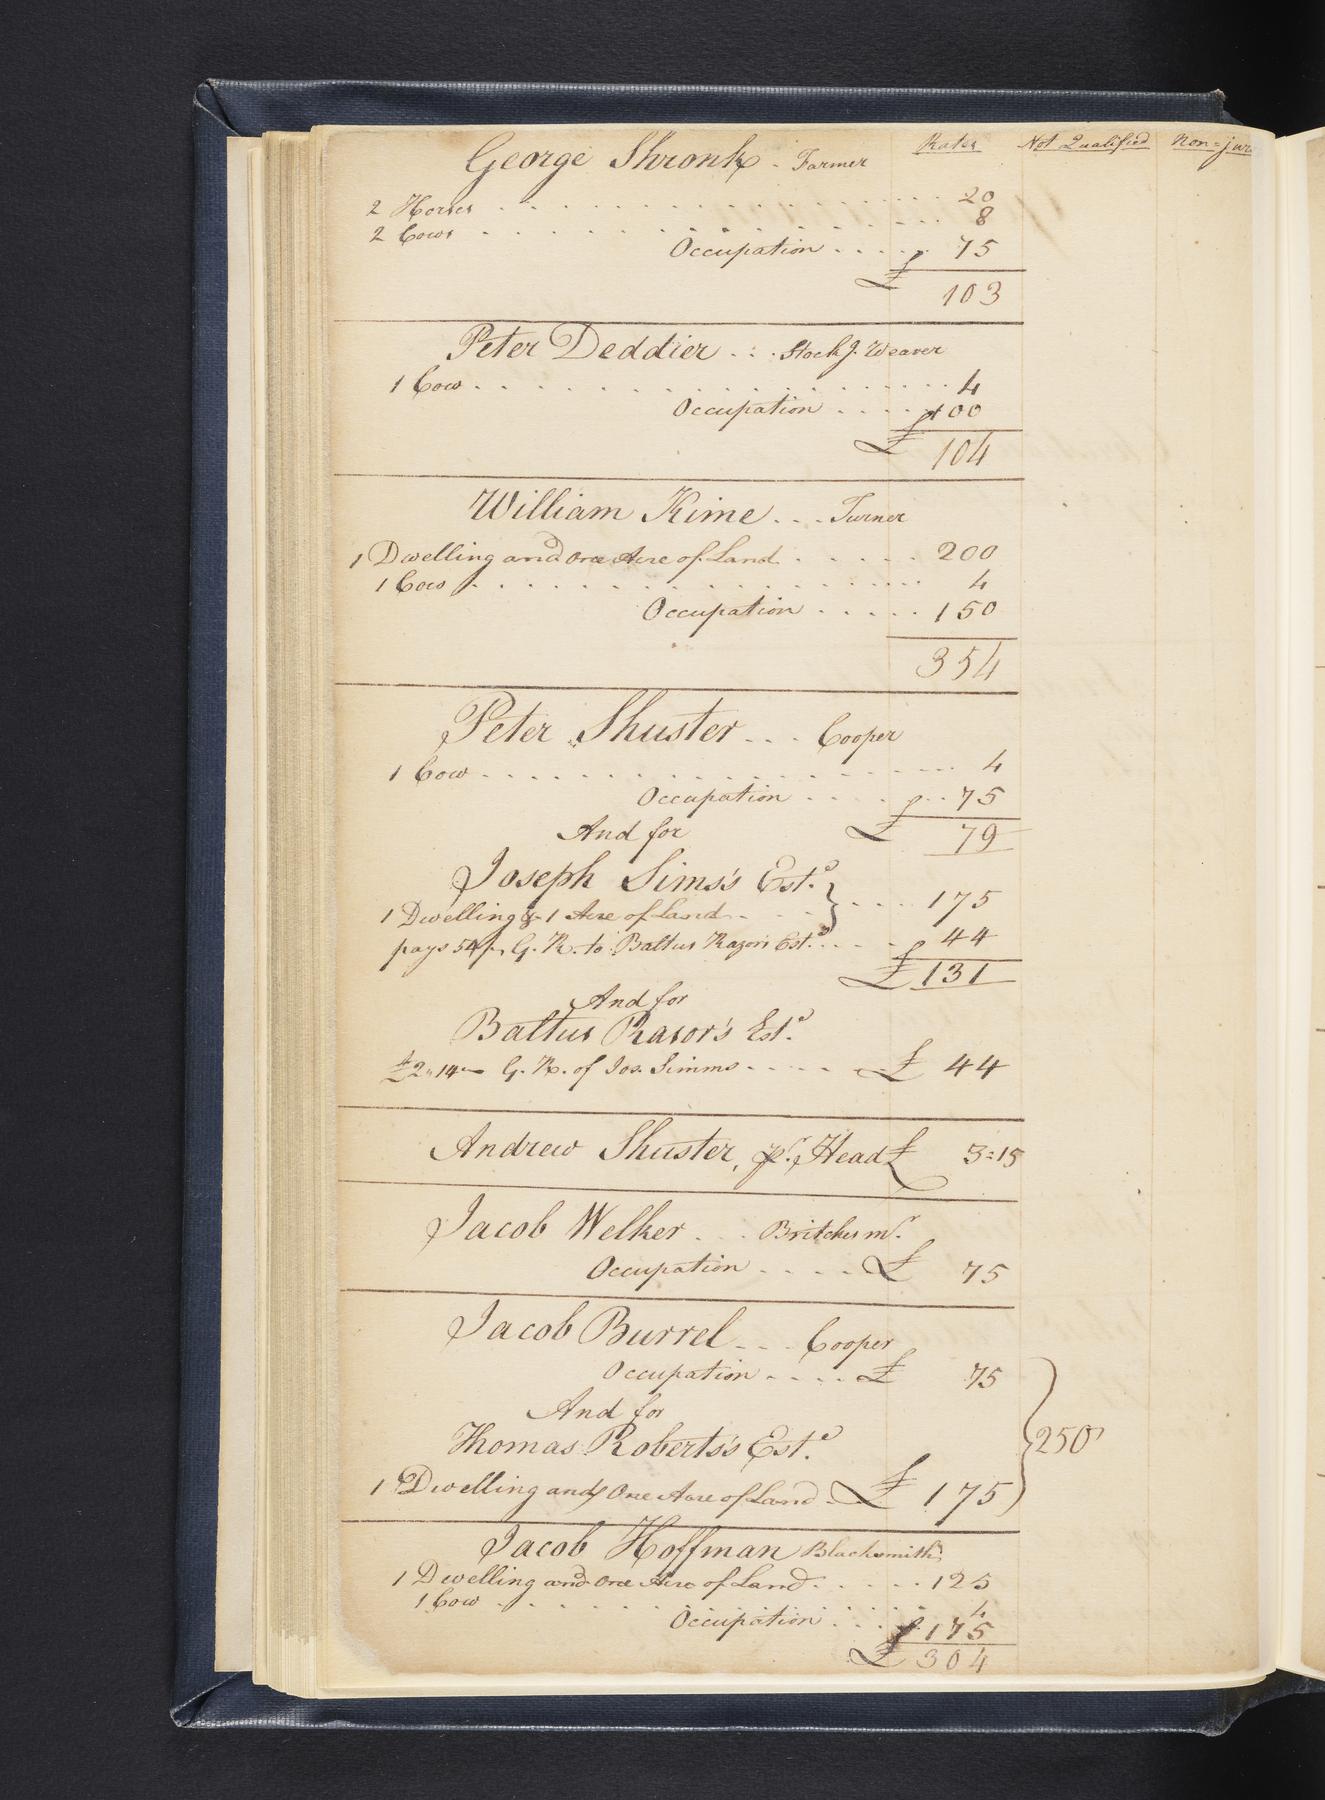 Rates Not Qualified Non=jur
George Shronk - Farmer
2 Horses 20
2 Cows 8
Occupation 75
£ 103
Peter Deddier Stock.g Weaver
1 Cow 4
Occupation 100
£ 104
William Kime Turner
1 Dwelling and One Acre of Land 200
1 Cow 4
Occupation 150
354
Peter Shuster Cooper
1 Cow 4
Occupation 75
£ 79
And for
Joseph Sims's Est.e
1 Dwelling & 1 Acre of Land 175
pays 54/ G. R. to Baltus Razor's Est.e 44
£ 131
And for
Baltus Rasor's Est.e
£2"14"- G. R. of Jos. Simms £ 44
Andrew Shuster, pr. Head £ 3=15
Jacob Welker Britches mr.
Occupation £ 75
Jacob Burrel Cooper
Occupation £ 75
And for
Thomas Roberts's Est.e
250
1 Dwelling and One Acre of Land £ 175
Jacob Hoffman Blacksmith
1 Dwelling and One Acre of Land 125
1 Cow 4
Occupation 175
£ 304